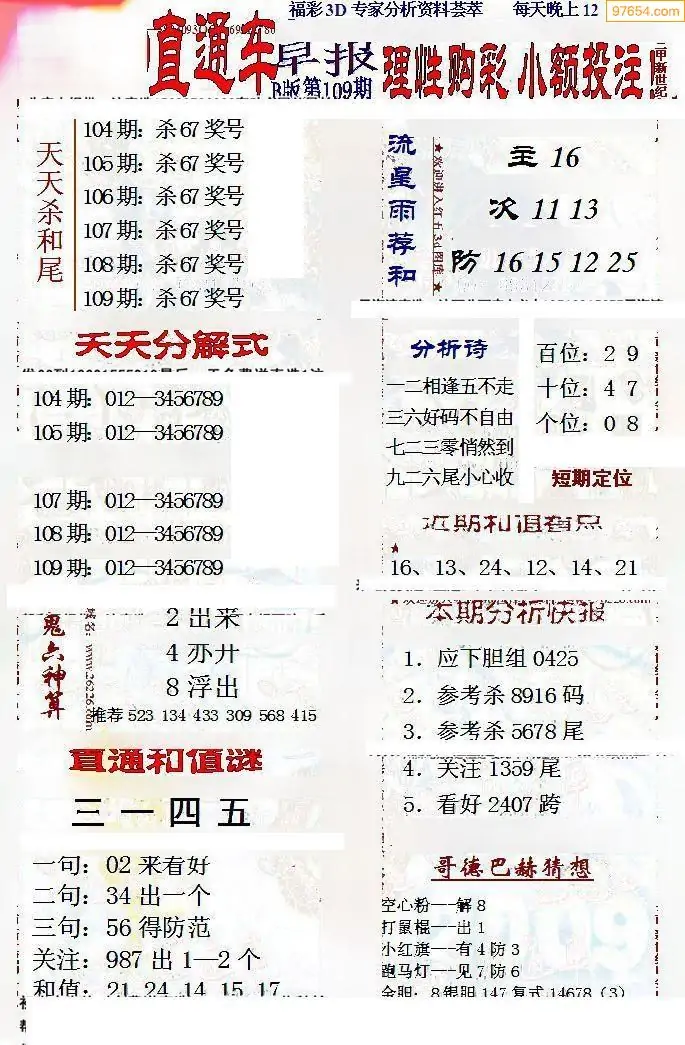 福彩3D 专家分析资料荟萃 每天晚上12
97654.com
直通车早报
B版第109期
理性购彩 小额投注
天天杀和尾
104期: 杀67奖号
105期: 杀67奖号
106期: 杀67奖号
107期: 杀67奖号
108期: 杀67奖号
109期: 杀67奖号
流星雨荐和
主 16
次 11 13
防 16 15 12 25
天天分解式
104期: 012—3456789
105期: 012—3456789
107期: 012—3456789
108期: 012—3456789
109期: 012—3456789
分析诗
一二相逢五不走
三六好码不自由
七二三零悄然到
九二六尾小心收
百位: 2 9
十位: 4 7
个位: 0 8
短期定位
近期和值看点
16、13、24、12、14、21
鬼六神算
域名: www.26226.com
2出来
4亦升
8浮出
推荐 523 134 433 309 568 415
本期分析快报
1. 应下胆组0425
2. 参考杀8916码
3. 参考杀5678尾
4. 关注1359尾
5. 看好2407跨
直通和值谜
三一四五
一句: 02来看好
二句: 34出一个
三句: 56得防范
关注: 987出1—2个
和值: 21 24 14 15 17
哥德巴赫猜想
空心粉---解8
打鼠棍---出1
小红旗---有4防3
跑马灯---见7,防6
金胆: 8银胆147复式14678 (3)